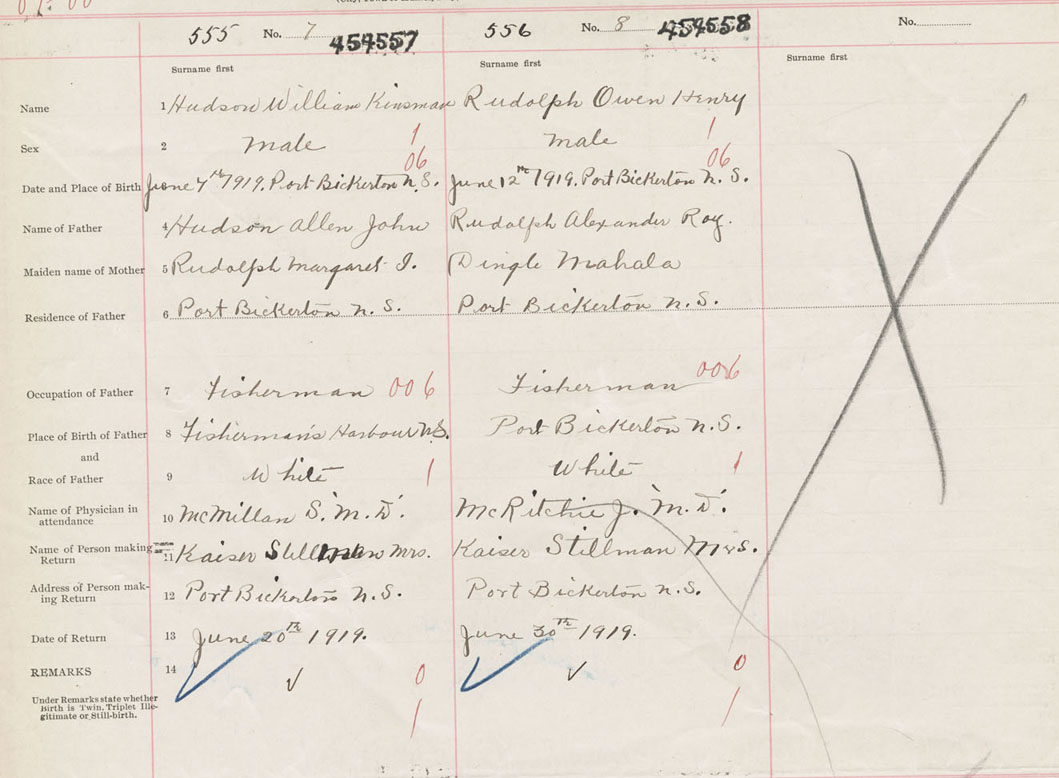 555 No. 7 454557
556 No. 8 454558
No.
Surname first
Surname first
Surname first
Name 1 Hudson William Kinsman Rudolph Owen Henry
Sex 2 Male 1 Male 1
06 06
Date and Place of Birth June 7th 1919. Port Bickerton N.S. June 12th 1919. Port Bickerton N.S.
Name of Father 4 Hudson Allen John Rudolph Alexander Roy.
Maiden name of Mother 5 Rudolph Margaret I. Dingle Mahala
Residence of Father 6 Port Bickerton N.S. Port Bickerton N.S.
Occupation of Father 7 Fisherman 006 Fisherman 006
Place of Birth of Father 8 Fisherman's Harbour N.S. Port Bickerton N.S.
and
Race of Father 9 White 1 White 1
Name of Physician in
attendance 10 McMillan S. M.D. McRitchie J. M.D.
Name of Person making
Return 11 Kaiser Stillman Mrs. Kaiser Stillman Mrs.
Address of Person mak-
ing Return 12 Port Bickerton N.S. Port Bickerton N.S.
Date of Return 13 June 20th 1919. June 30th 1919.
REMARKS 14 0 0
Under Remarks state whether
Birth is Twin, Triplet Ille-
gitimate or Still-birth. 1 1